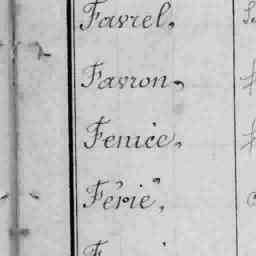 Favrel,
Favron,
Fenice,
Férié,